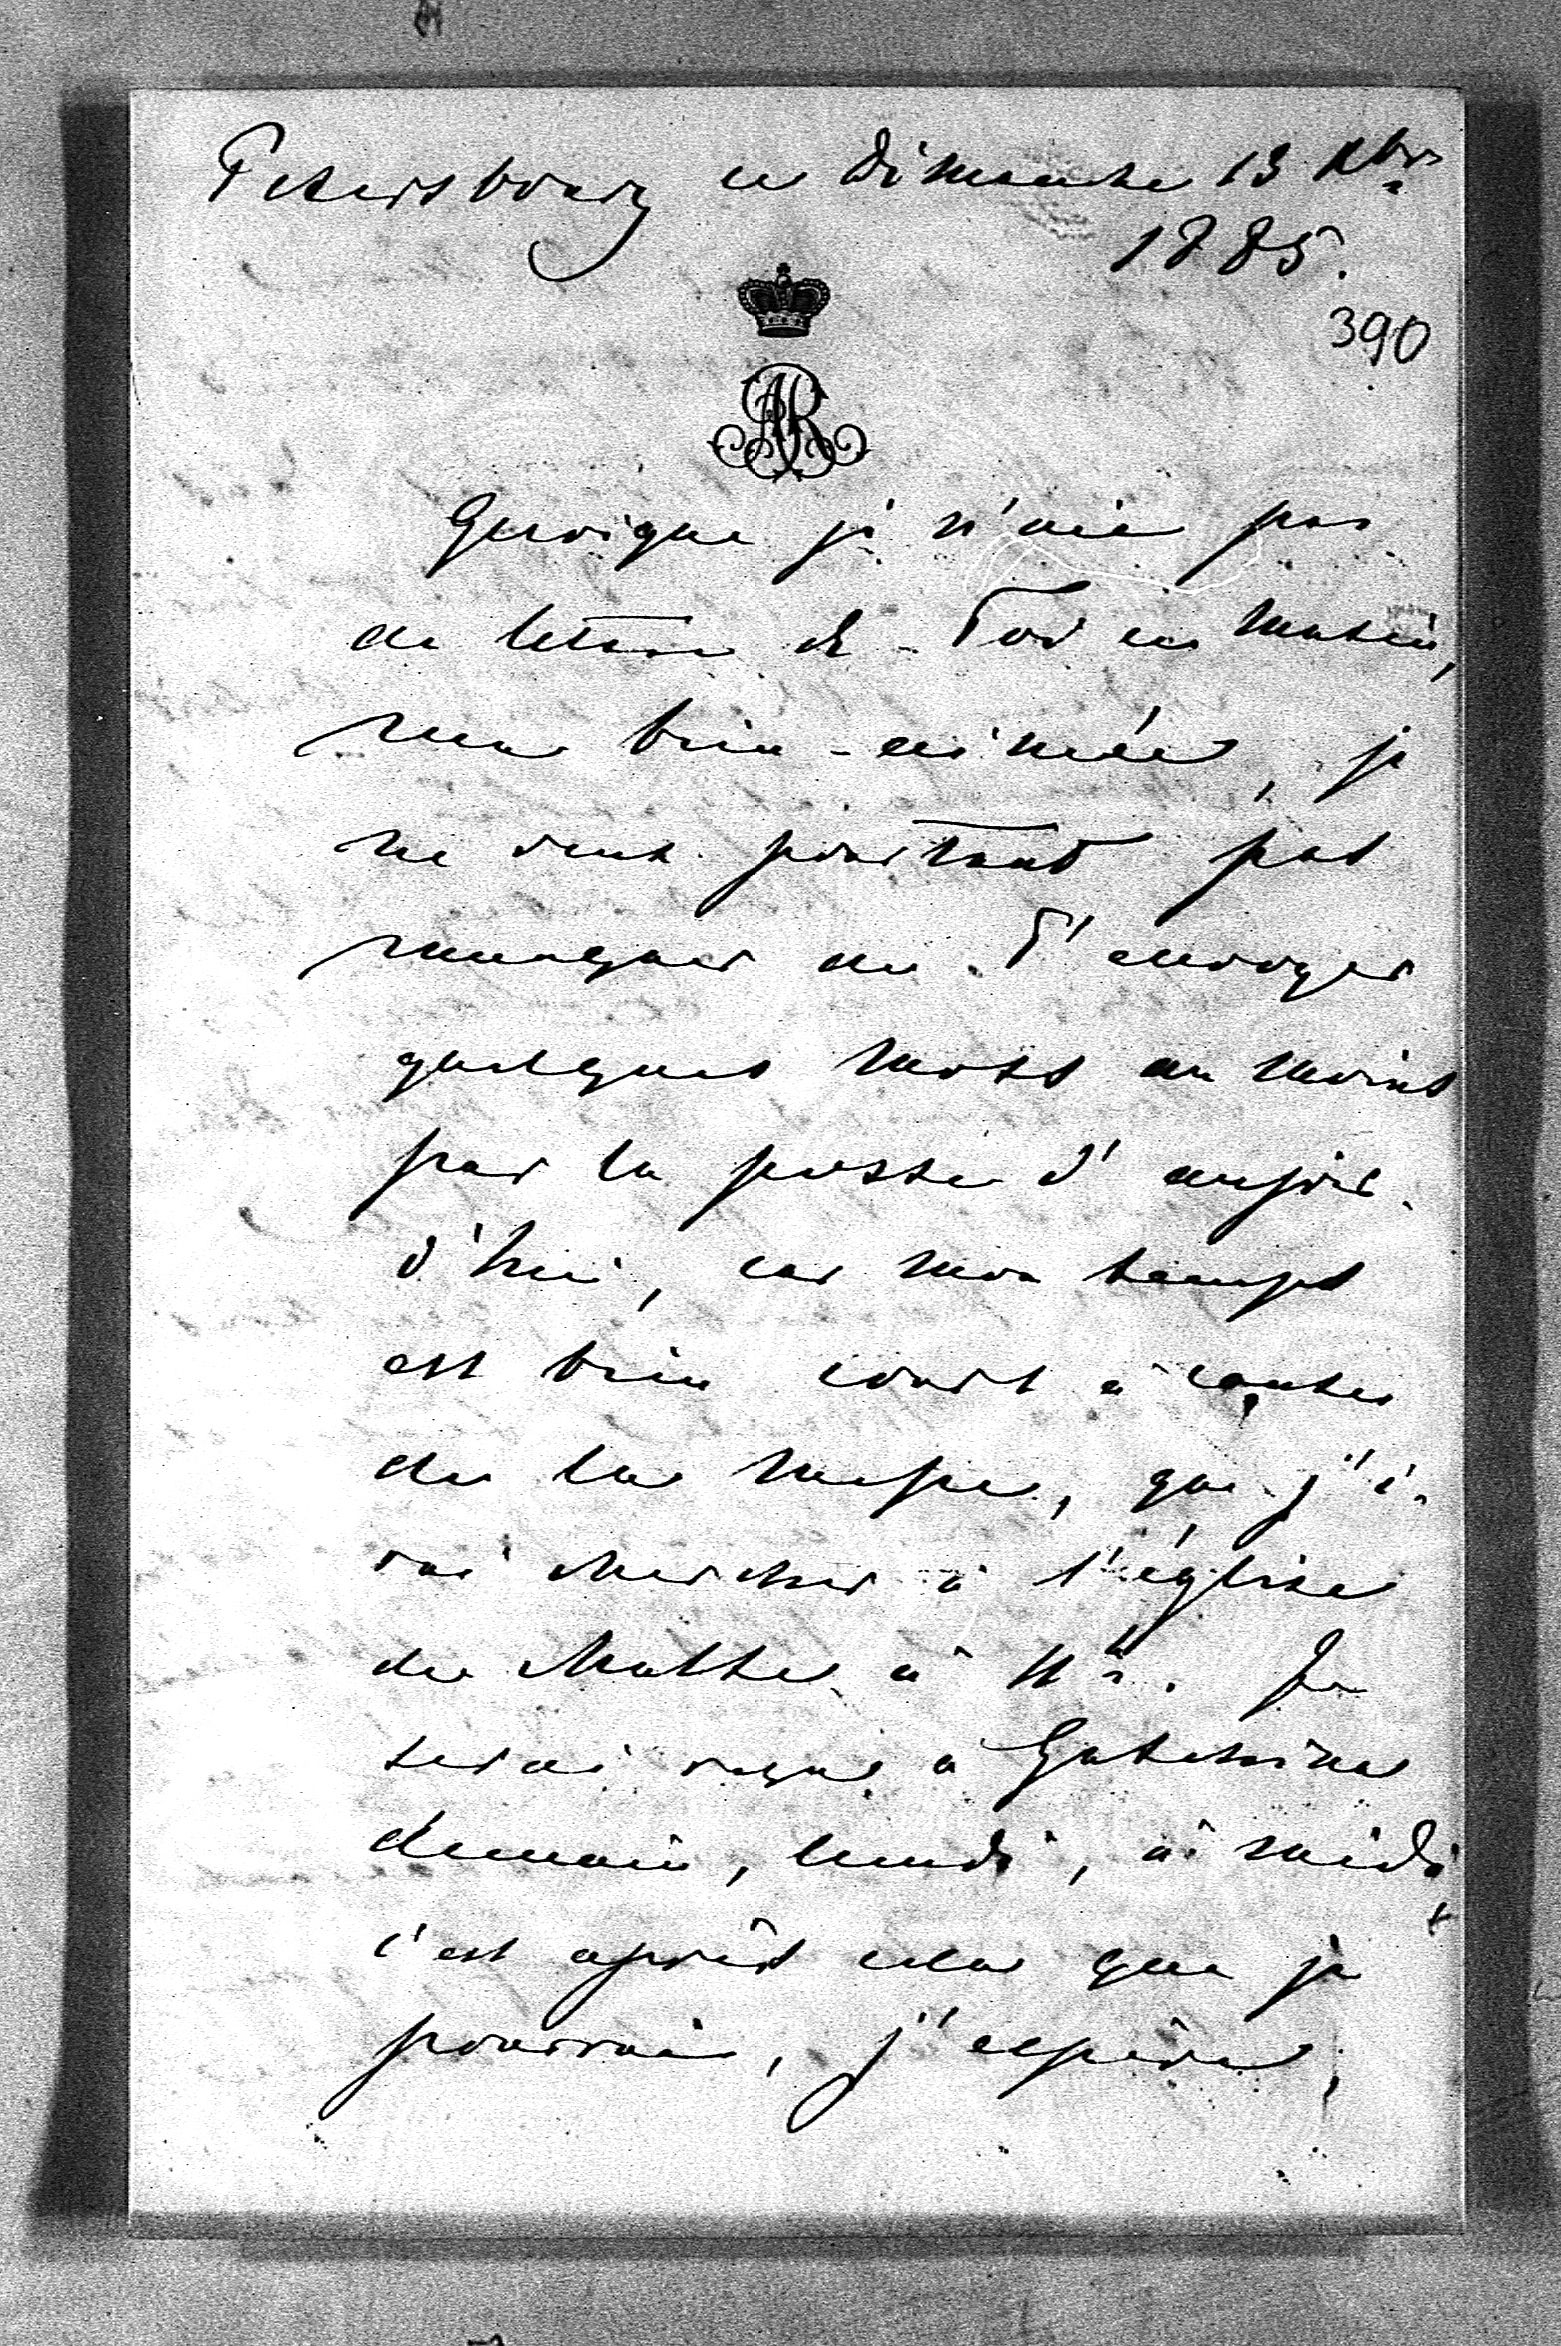 Petersbourg ce Dimanche 13 Xbre
1885.
390
Quoique je n'aie pas
de lettre de Toi ce matin,
ma bien-aimée, je
ne veux pourtant pas
manquer de T'envoyer
quelques mots au moins
par la poste d'aujour-
d'hui, car mon temps
est bien court à cause
de la messe, que j'i-
rai chercher à l'église
de Malthe à 11 h. Je
serai reçue à Gatschina
demain, lundi, à midi
c'est après cela que je
pourrai, j'espère,